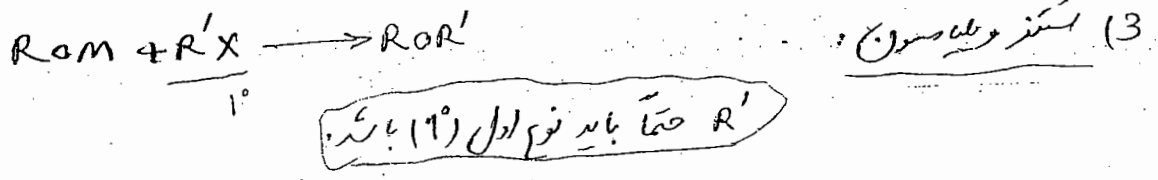 3) سنتز ویلیامسون:
ROM + R'X ⟶ ROR'
1°
R' حتماً باید نوع اول (1°) باشد.